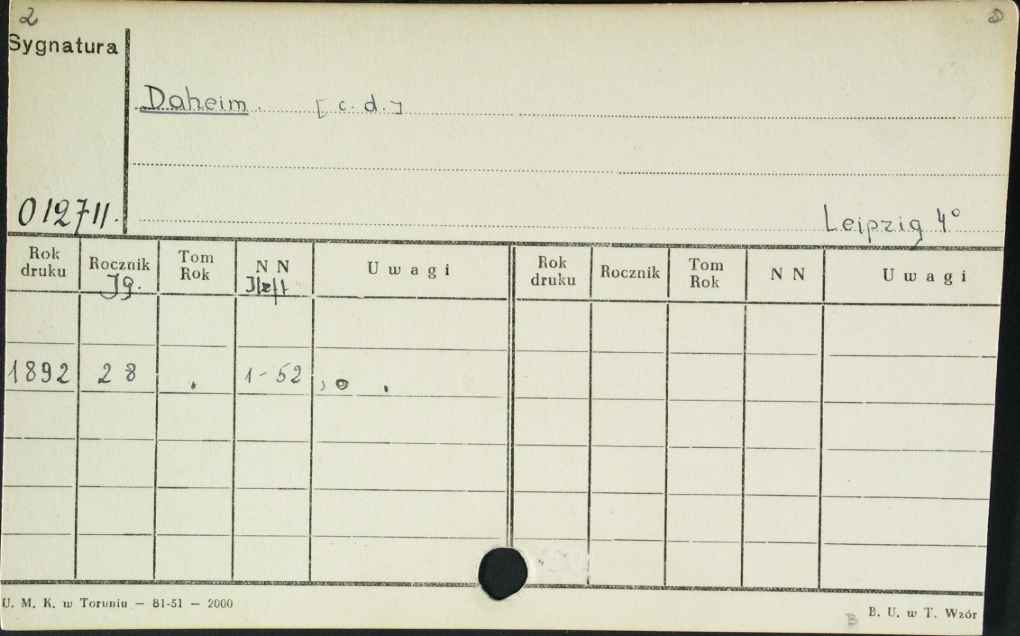 2
Sygnatura
Daheim. [c. d.]
012711.
Leipzig 4°
Rok druku Rocznik Tom Rok N N Uwagi Rok druku Rocznik Tom Rok N N Uwagi
Jg.
1892 28 . 1-52 , o .
U. M. K. w Toruniu — 81-51 — 2000
B
B. U. w T. Wzór